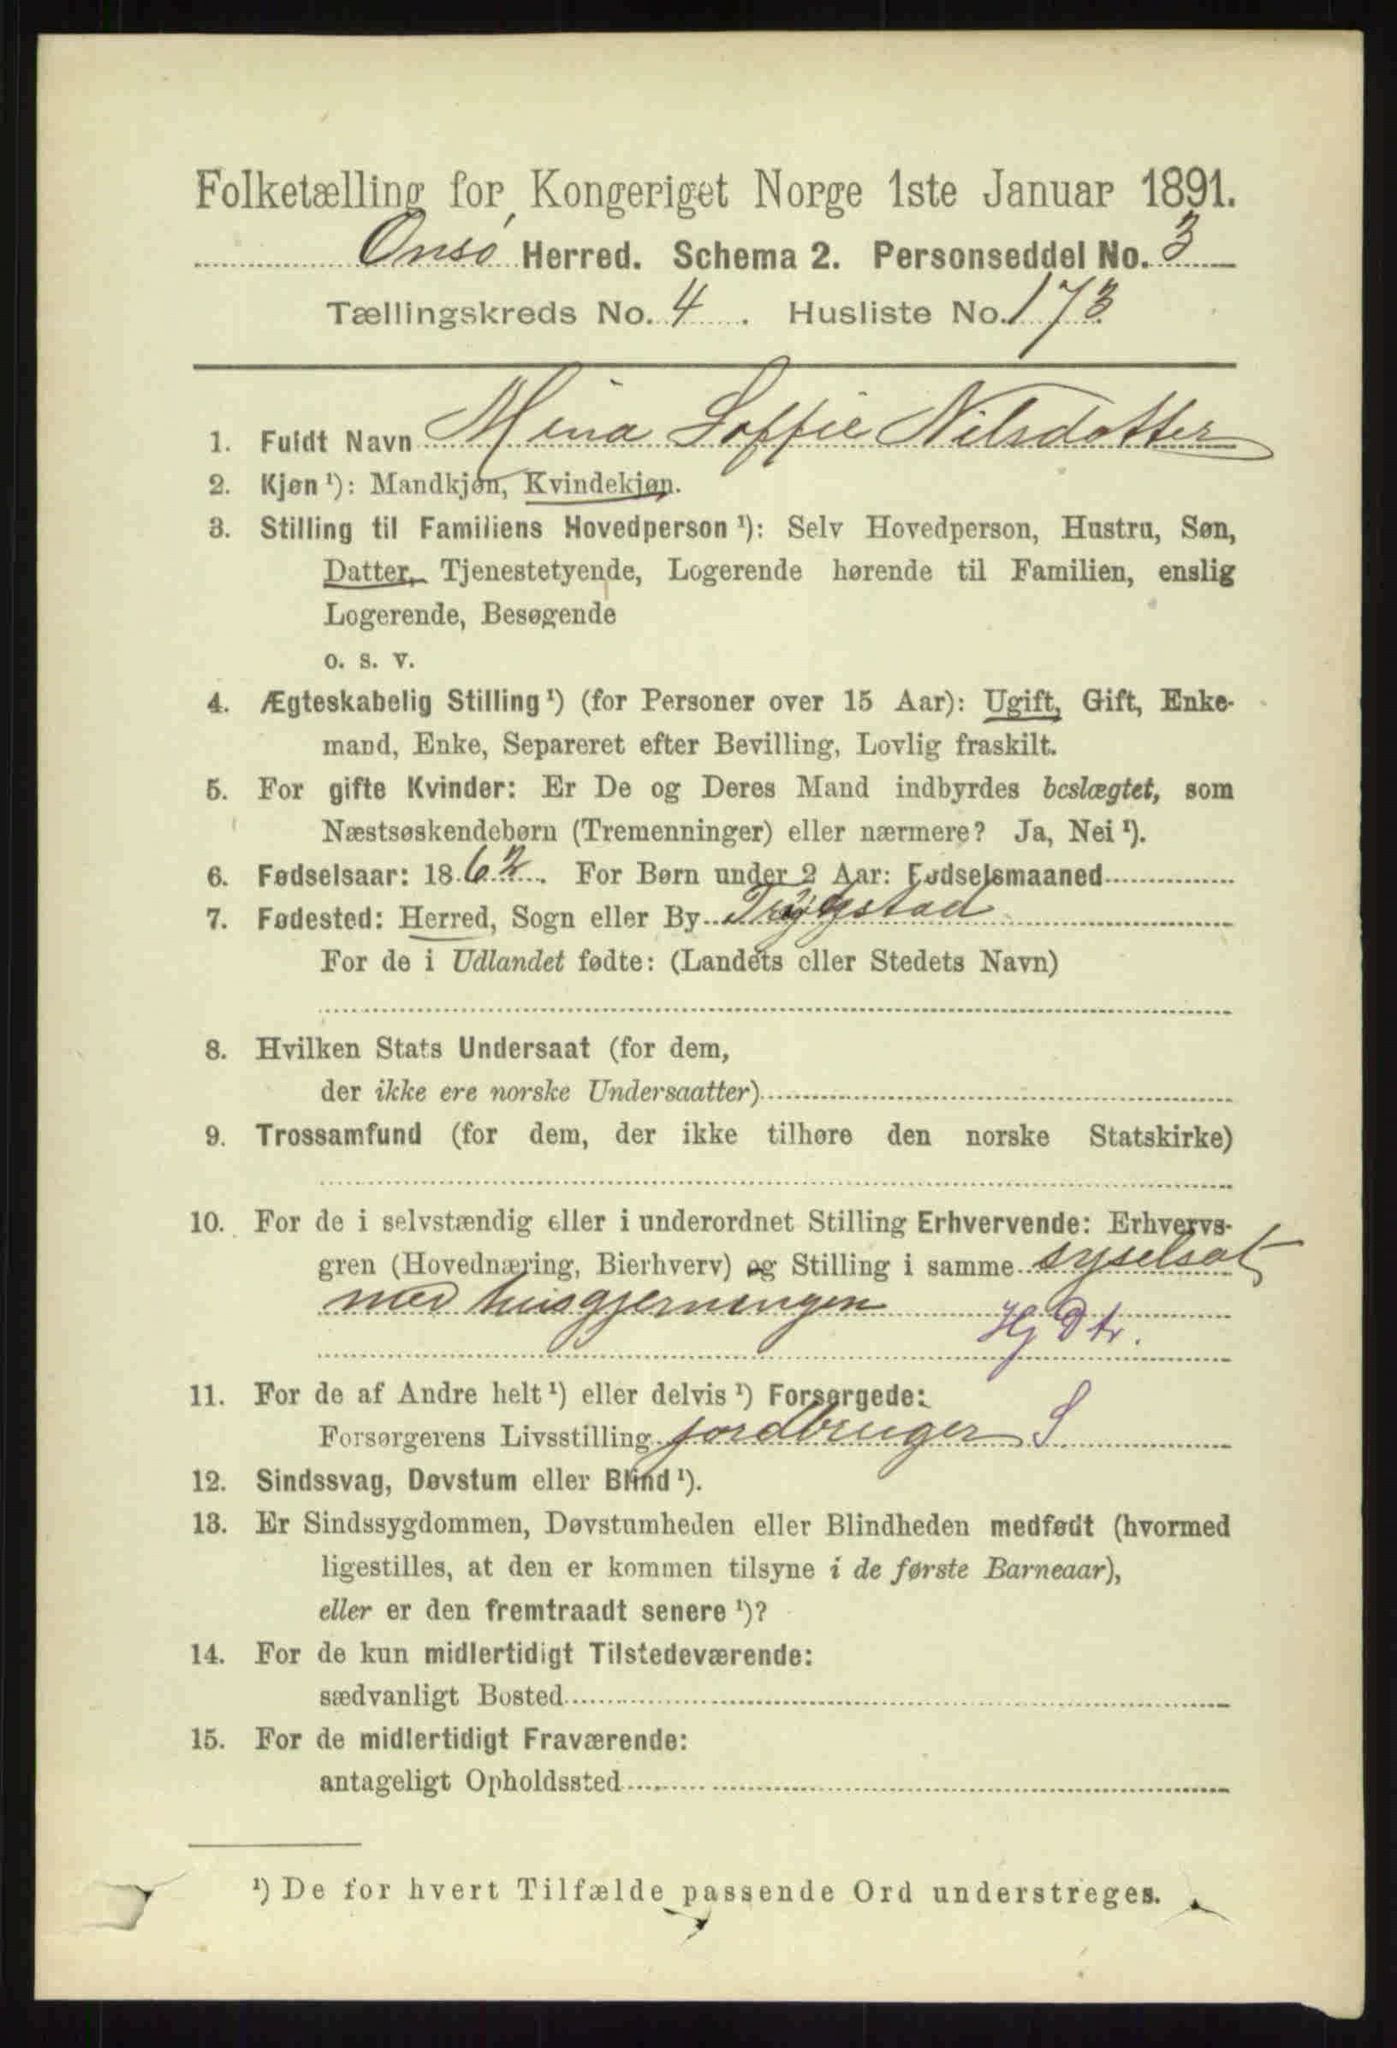 Folketælling for Kongeriget Norge 1ste Januar 1891.
Onsø Herred. Schema 2. Personseddel No. 3
Tællingskreds No. 4. Husliste No. 173
1. Fuldt Navn Mina Soffie Nilsdatter
2. Kjøn ¹): Mandkjøn, Kvindekjøn.
3. Stilling til Familiens Hovedperson ¹): Selv Hovedperson, Hustru, Søn,
Datter, Tjenestetyende, Logerende hørende til Familien, enslig
Logerende, Besøgende
o. s. v.
4. Ægteskabelig Stilling ¹) (for Personer over 15 Aar): Ugift, Gift, Enke-
mand, Enke, Separeret efter Bevilling, Lovlig fraskilt.
5. For gifte Kvinder: Er De og Deres Mand indbyrdes beslægtet, som
Næstsøskendebørn (Tremenninger) eller nærmere? Ja, Nei ¹).
6. Fødselsaar: 1862. For Børn under 2 Aar: Fødselsmaaned
7. Fødested: Herred, Sogn eller By Trygstad
For de i Udlandet fødte: (Landets eller Stedets Navn)
8. Hvilken Stats Undersaat (for dem,
der ikke ere norske Undersaatter)
9. Trossamfund (for dem, der ikke tilhøre den norske Statskirke)
10. For de i selvstændig eller i underordnet Stilling Erhvervende: Erhvervs-
gren (Hovednæring, Bierhverv) og Stilling i samme syselsat
med husgjerningen
Hj Dtr.
11. For de af Andre helt ¹) eller delvis ¹) Forsørgede:
Forsørgerens Livsstilling jordbruger S
12. Sindssvag, Døvstum eller Blind ¹).
13. Er Sindssygdommen, Døvstumheden eller Blindheden medfødt (hvormed
ligestilles, at den er kommen tilsyne i de første Barneaar),
eller er den fremtraadt senere ¹)?
14. For de kun midlertidigt Tilstedeværende:
sædvanligt Bosted
15. For de midlertidigt Fraværende:
antageligt Opholdssted
¹) De for hvert Tilfælde passende Ord understreges.